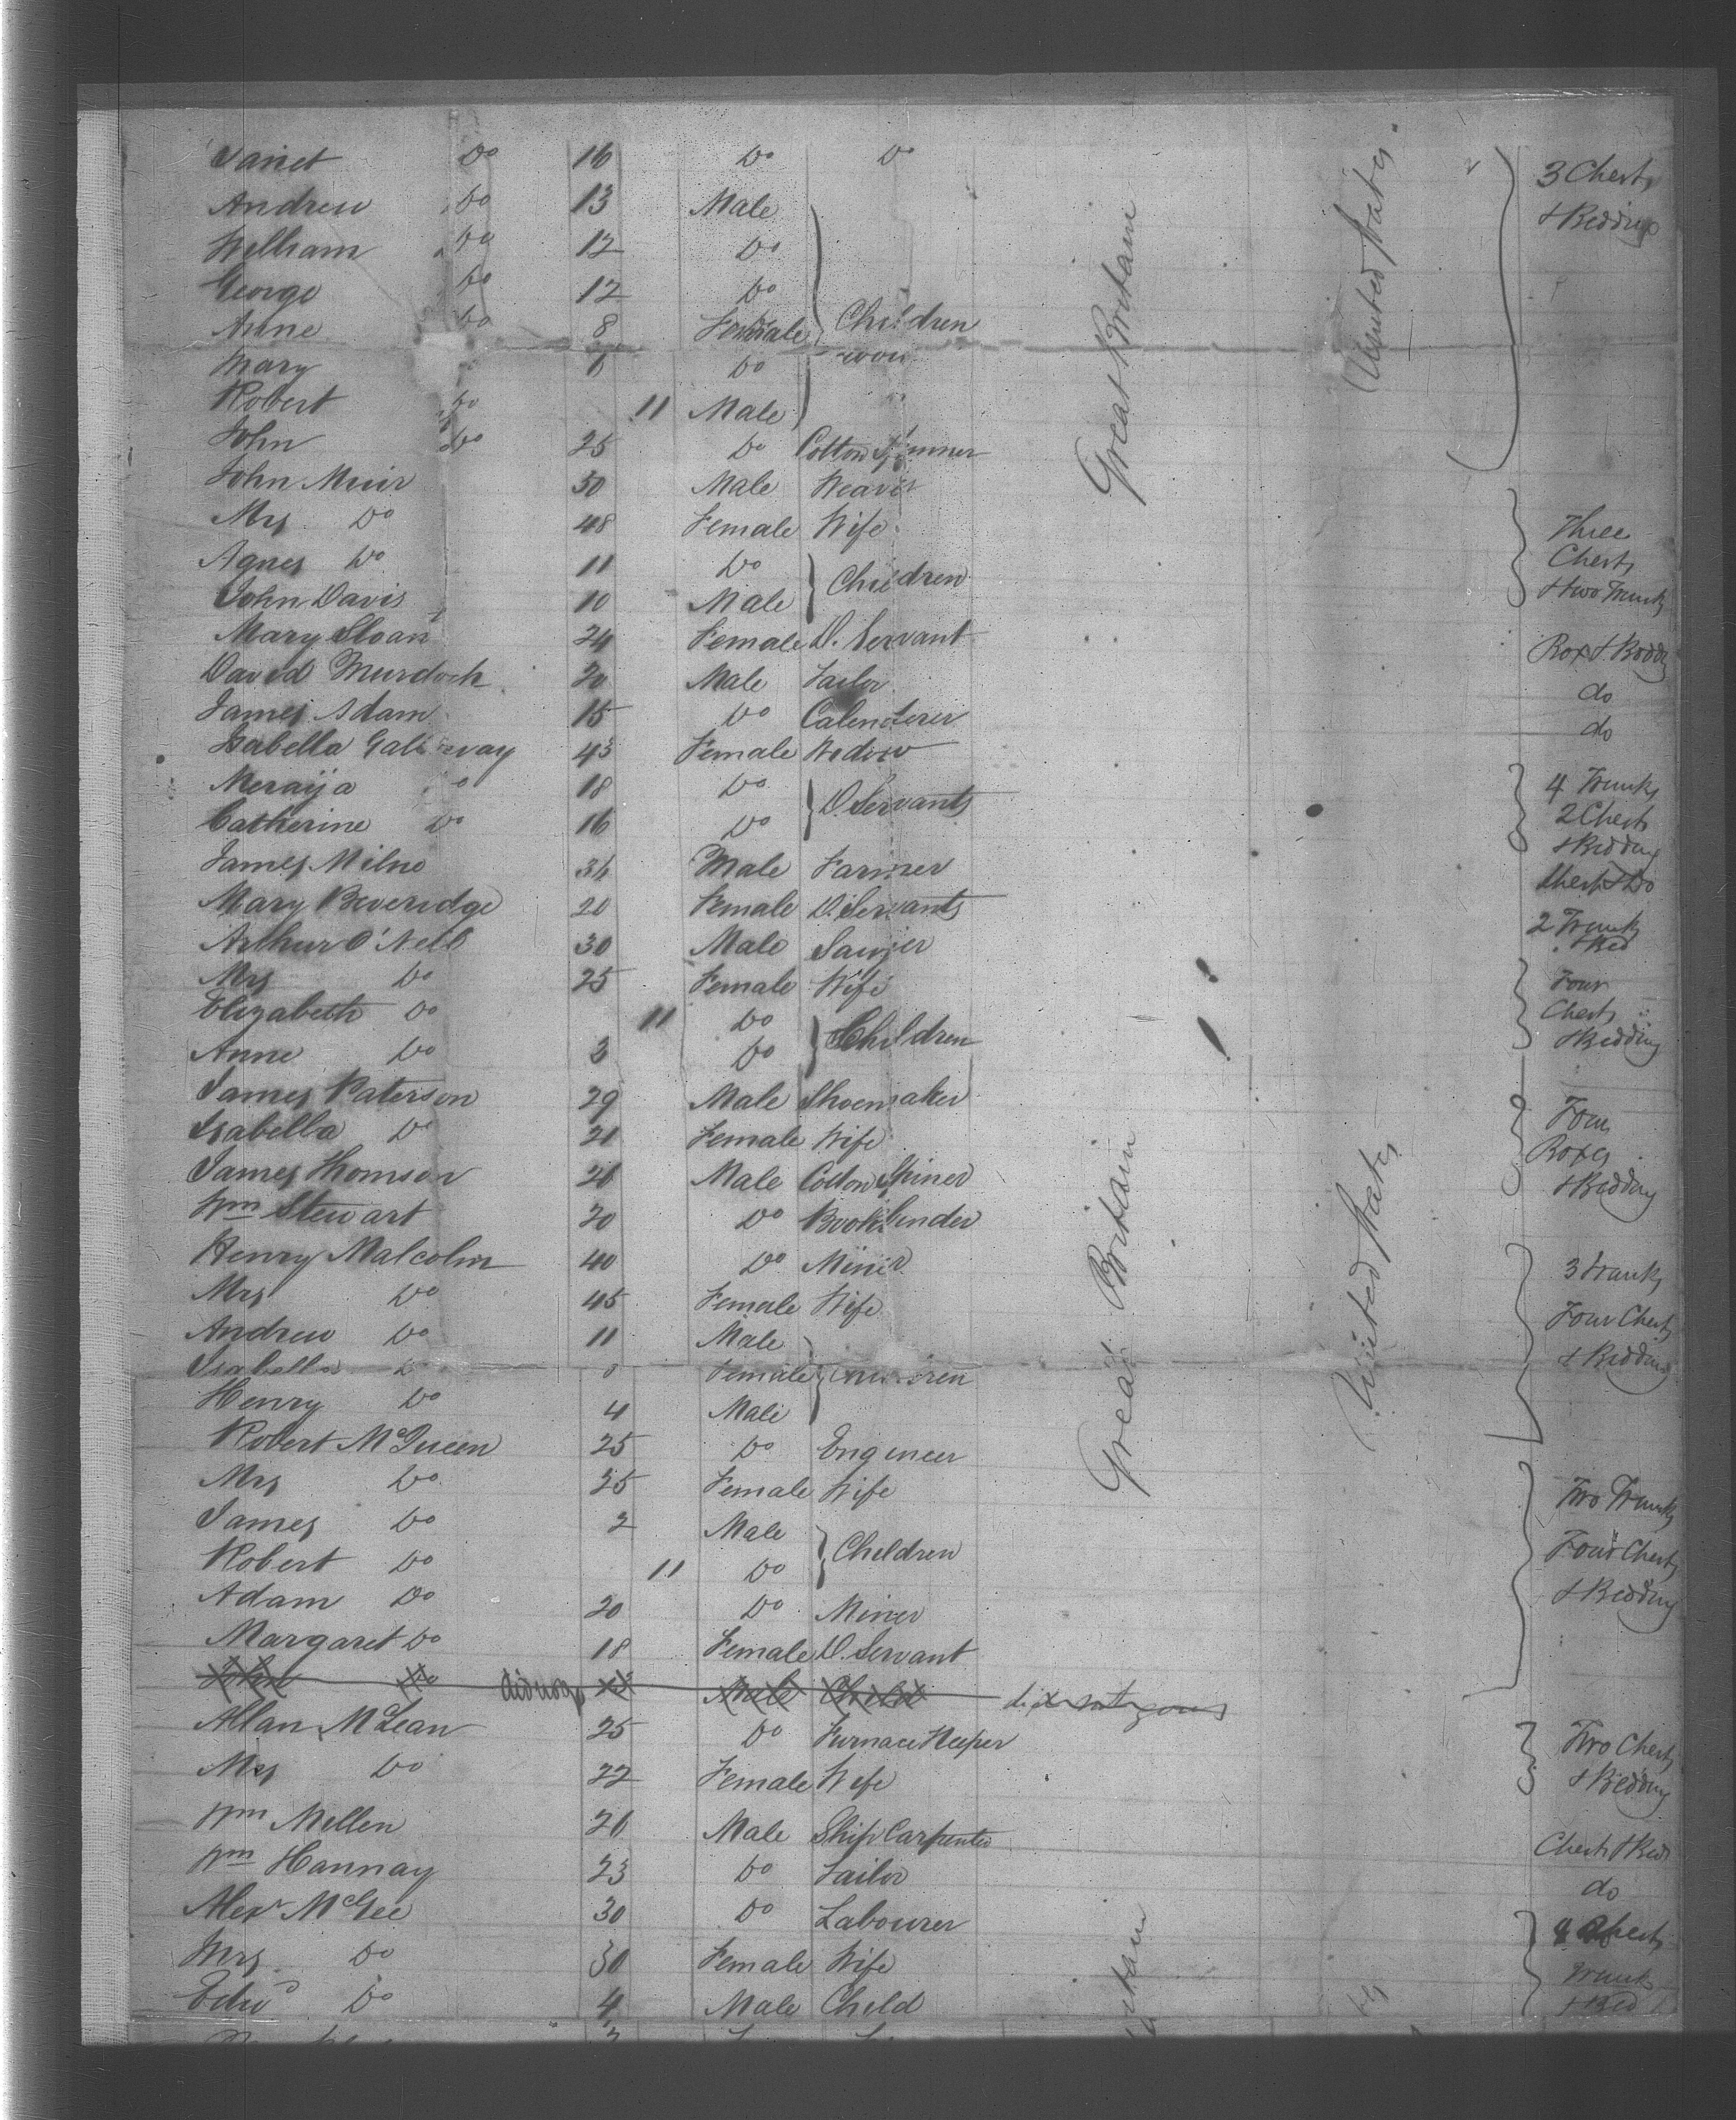 Janet Do 16 Do Do 3 Chests
Andrew Do 13 Male & Bedding
William Do 12 Do
George Do 12 Do
Anne Do 8 Female Children
Mary 6 Do
Robert Do 11 Male
John Do 25 Do Cotton Spinner
Great Britain
United States
John Muir 50 Male Weaver
Mrs Do 48 Female Wife Three
Agnes Do 11 Do Children Chests
John Davis 10 Male & two Trunks
Mary Sloan 24 Female D. Servant Box & Beddg
David Murdoch 20 Male Tailor do
James Adam 15 Do Calenderer do
Isabella Galloway 43 Female Widow
Do 18 Do D. Servants 4 Trunks
Catherine Do 16 Do 2 Chests
& Bedding
James Milne 34 Male Farmer Chest & Do
Mary Beveridge 20 Female D. Servants 2 Trunks
& Bed
Arthur O'Neil 30 Male Sawyer
Mrs Do 25 Female Wife Four
Elizabeth Do 11 Do Children Chests
Anne Do 3 Do & Bedding
James Paterson 29 Male Shoemaker Four
Isabella Do 21 Female Wife Boxes
James Thomson 21 Male Cotton Spiner & Bedding
Wm Stewart 20 Do Book Binder
Henry Malcolm 40 Do Miner 3 Trunks
Mrs Do 45 Female Wife Four Chests
Andrew Do 11 Male & Bedding
Isabella Do Female Children
Henry Do 4 Male
Great Britain
United States
Robert McQueen 25 Do Engineer
Mrs Do 25 Female Wife Two Trunks
James Do 2 Male Children Four Chests
Robert Do 11 Do & Bedding
Adam Do 20 Do Miner
Margaret Do 18 Female D. Servant
John Do did not go Male Child did not go
Allan McLean 25 Do Furnace Keeper Two Chests
Mrs Do 22 Female Wife & Bedding
Wm Mellen 21 Male Ship Carpenter Chest & Bed
Wm Hannay 23 Do Tailor do
Alexr McGee 30 Do Labourer 4 Chests
Mrs Do 30 Female Wife Trunk
Edwd Do 4 Male Child & Bed